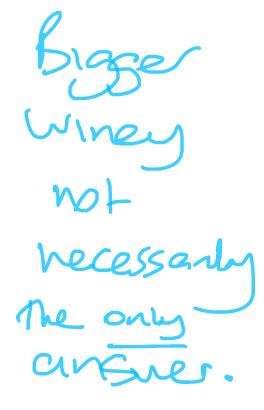 Bigger
winey
not
necessarily
the only
answer.